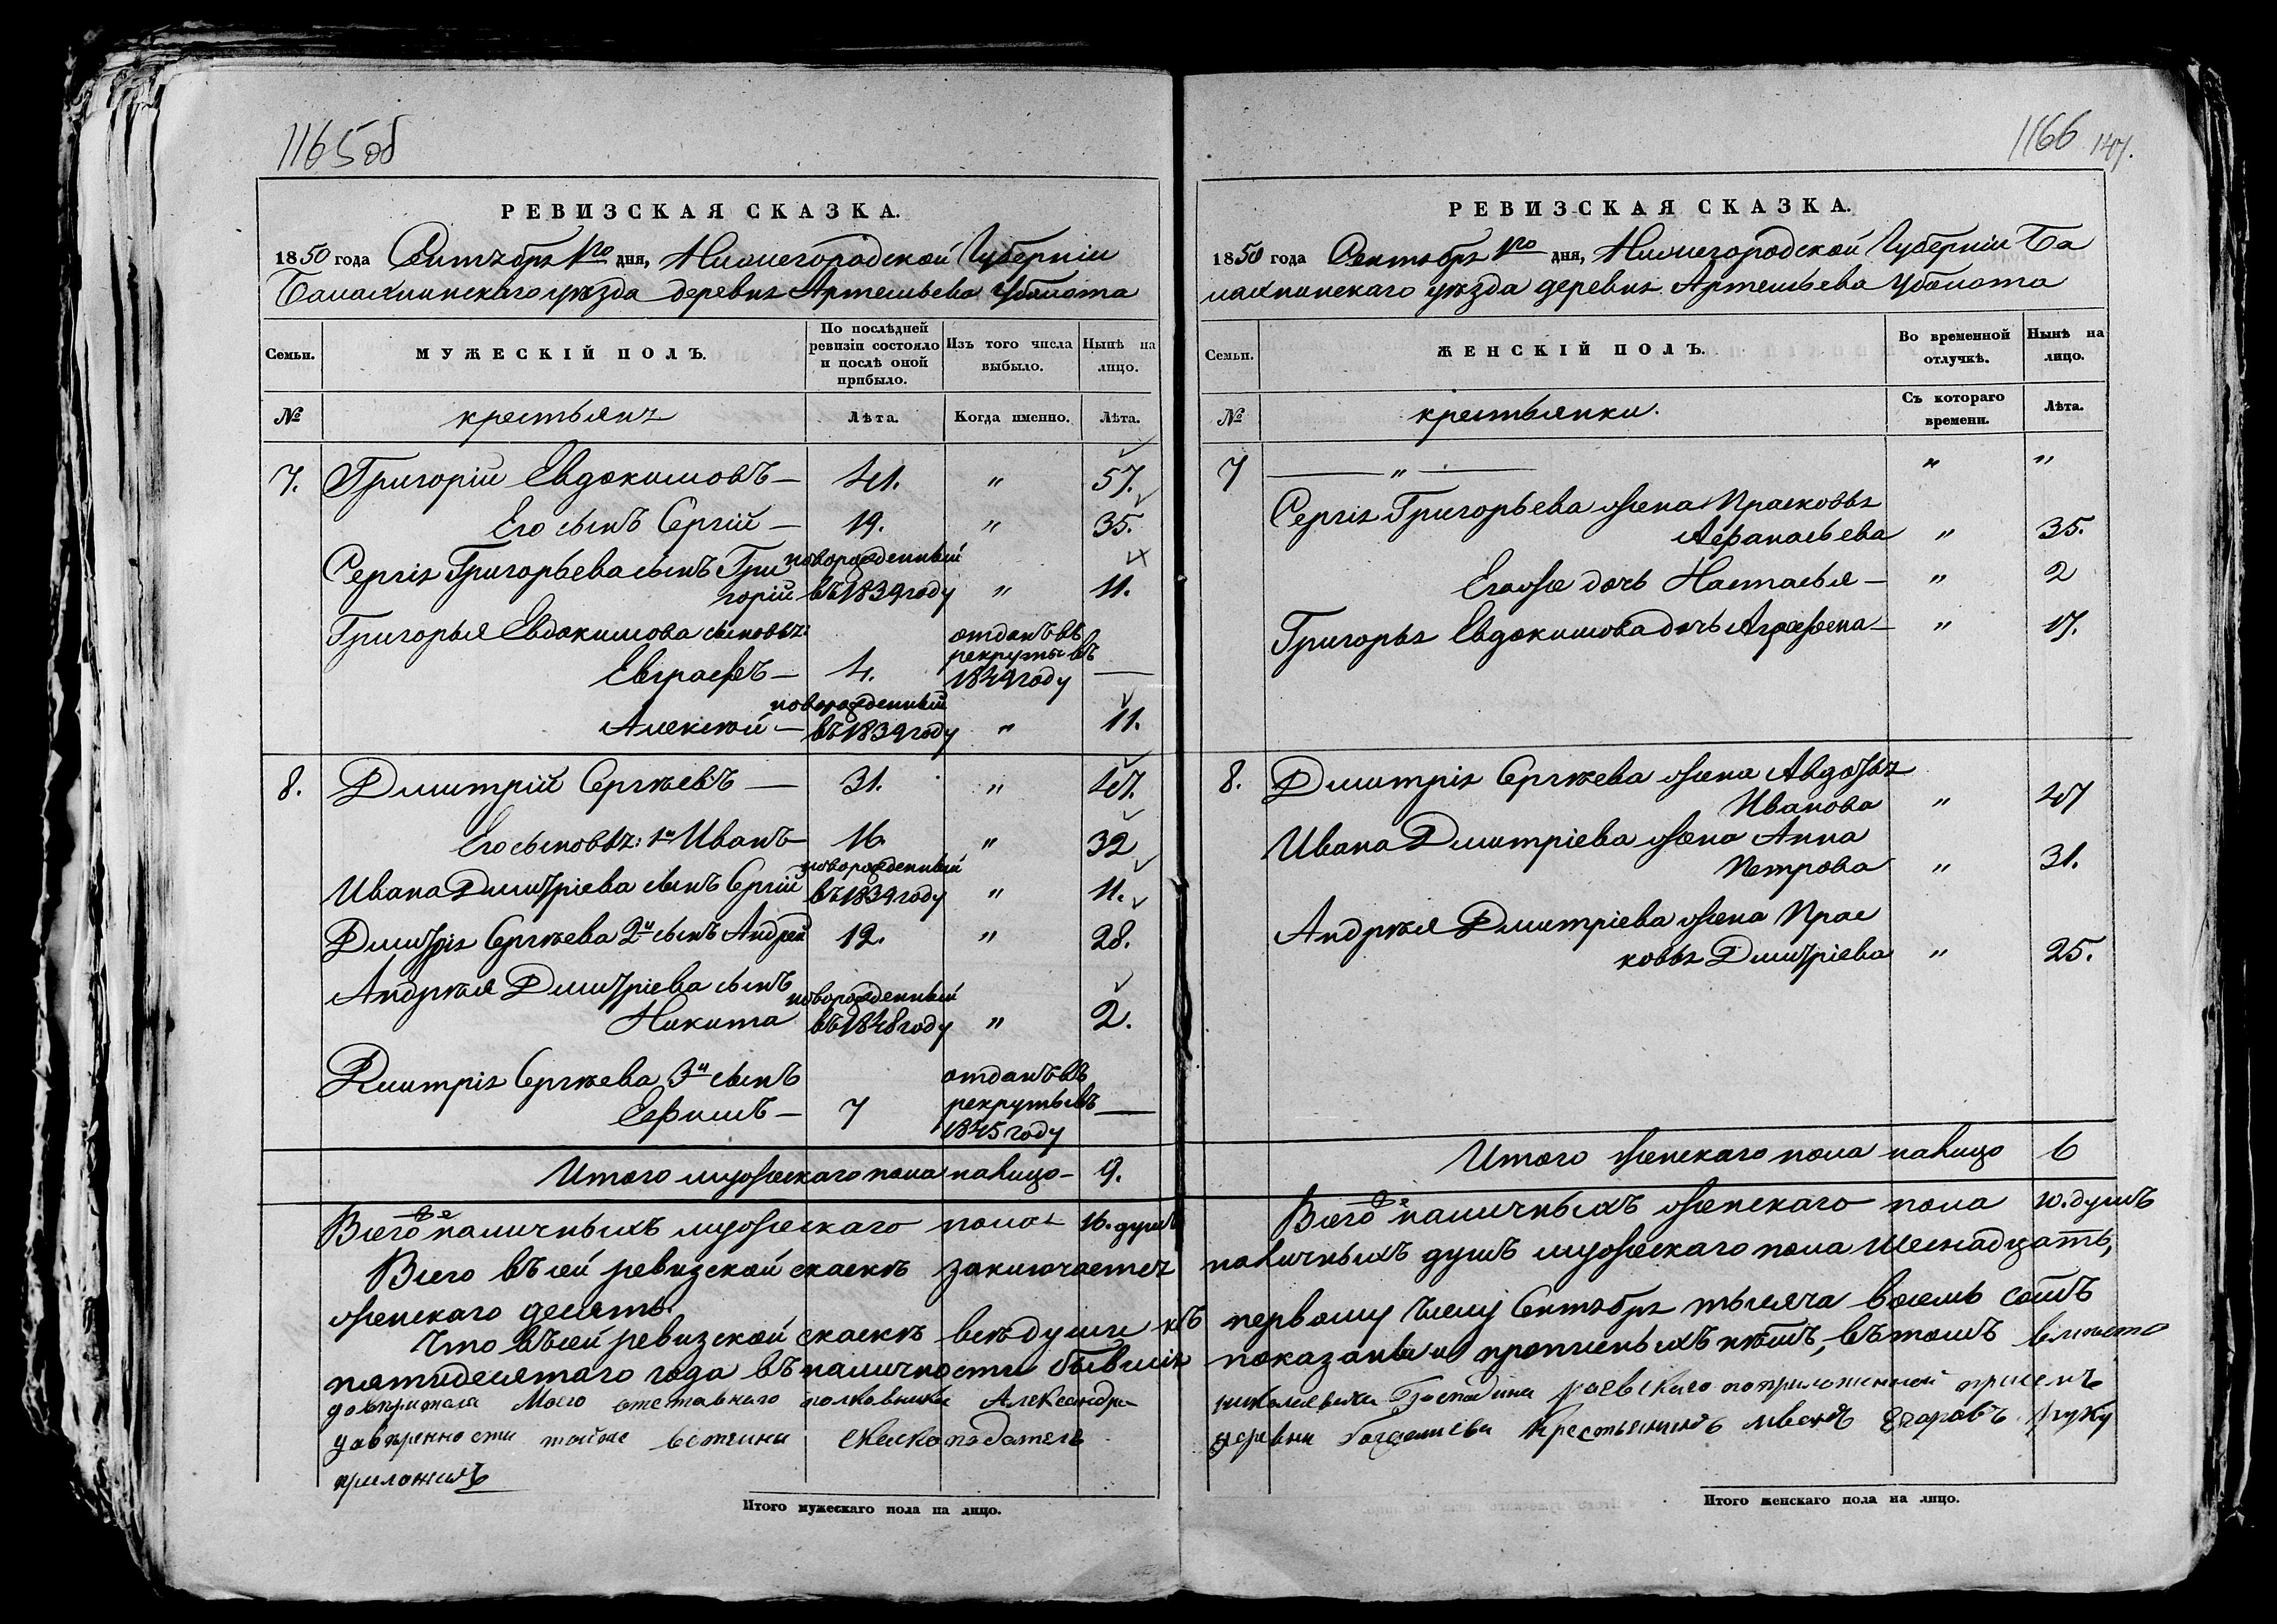 1165об
РЕВИЗСКАЯ СКАЗКА.
1850 года Сентября 1го дня, Нижегородской Губерніи
Балахнинскаго уѣзда деревня Артемьева Уболота
Семьи.
МУЖЕСКІЙ ПОЛЪ.
По послѣдней ревизіи состояло и послѣ оной прибыло.
Изъ того числа выбыло.
Нынѣ на лицо.
№
крестьянъ
Лѣта.
Когда именно.
Лѣта.
7. Григорій Евдокимовъ — 41. " 57.
Его сынъ Сергій — 19. " 35.
Сергія Григорьева сынъ Гри новорожденный
горій — въ 1839 году " 11.
Григорья Евдокимова сыновья: отданъ въ
рекруты въ
Евграфъ — 4. 1849 году —
новорожденный
Алексѣй — въ 1839 году " 11.
8. Дмитрій Сергѣевъ — 31. " 47.
Его сыновья: 1й Иванъ — 16 " 32
новорожденный
Ивана Дмитріева сынъ Сергій въ 1839 году " 11.
Дмитрія Сергѣева 2й сынъ Андрей 12. " 28.
Андрѣя Дмитріева сынъ новорожденный
Никита въ 1848 году " 2.
Дмитрія Сергѣева 3й сынъ отданъ въ
Ефимъ — 7 рекруты въ —
1845 году
Итого мужескаго пола налицо — 9.
Всего наличныхъ мужескаго пола 16. душъ
Всего въ сей ревизской скаскѣ заключается
женскаго десять.
Что въ сей ревизской скаскѣ всѣ души къ
пятидесятаго года въ наличности бывшія
довѣрителя Моего отставнаго полковника Александра
довѣренности скаско податель
приложилъ
Итого мужескаго пола на лицо.
1166 147.
РЕВИЗСКАЯ СКАЗКА.
1850 года Сентября 1го дня, Нижегородской Губерніи Ба
лахнинскаго уѣзда деревня Артемьева Уболота
Семьи.
ЖЕНСКІЙ ПОЛЪ.
Во временной отлучкѣ.
Нынѣ на лицо.
№
крестьянки.
Съ котораго времени.
Лѣта.
7 — " — " "
Сергія Григорьева жена Прасковья
Афанасьева " 35.
Егоже дочь Настасья — " 2
Григорья Евдокимова дочь Аграфена — " 17.
8. Дмитрія Сергѣева жена Авдотья
Иванова " 47
Ивана Дмитріева жена Анна
Петрова " 31.
Андрѣя Дмитріева жена Прас
ковья Дмитріева " 25.
Итого женскаго пола налицо 6
Всего наличныхъ женскаго пола 10. душъ
наличныхъ душъ мужескаго пола Шеснадцать,
первому числу Сентября тысяча восемь сотъ
показаны и прописныхъ нѣтъ, въ томъ вместо
николаевича Господина по приложенной при семъ
деревни крестьянинъ Егоровъ руку
Итого женскаго пола на лицо.